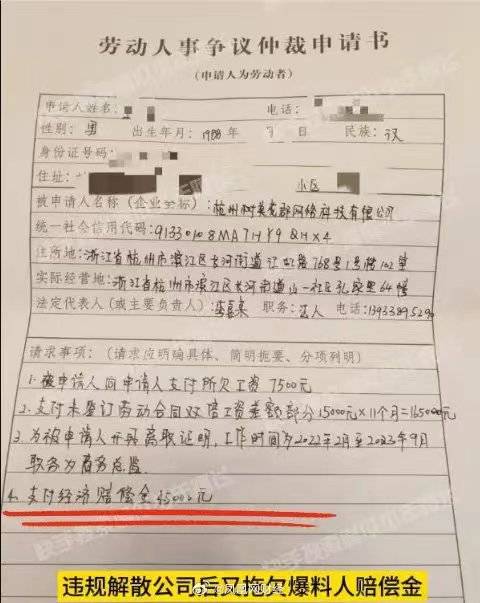 劳动人事争议仲裁申请书
(申请人为劳动者)
申请人姓名: 电话:
性别: 男 出生年月: 1988年 月 日 民族: 汉
身份证号码:
住址: 小区
被申请人名称(企业全称): 杭州树英 网络科技有限公司
统一社会信用代码: 91330108MA7HY9QHX4
住所地: 浙江省杭州市滨江区长河街道江 路768号1号楼102室
实际经营地: 浙江省杭州市滨江区长河街道山一社区孔家里64幢
法定代表人(或主要负责人): 职务: 法人 电话:
请求事项: (请求应明确具体、简明扼要、分项列明)
1. 被申请人向申请人支付所欠工资7500元
2. 支付未签订劳动合同双倍工资差额部分15000元×11个月=165000元
3. 为被申请人开据离职证明,工作时间为2022年2月至2023年9月
职务为商务总监
4. 支付经济赔偿金45000元
@凤凰网财经
违规解散公司后又拖欠爆料人赔偿金